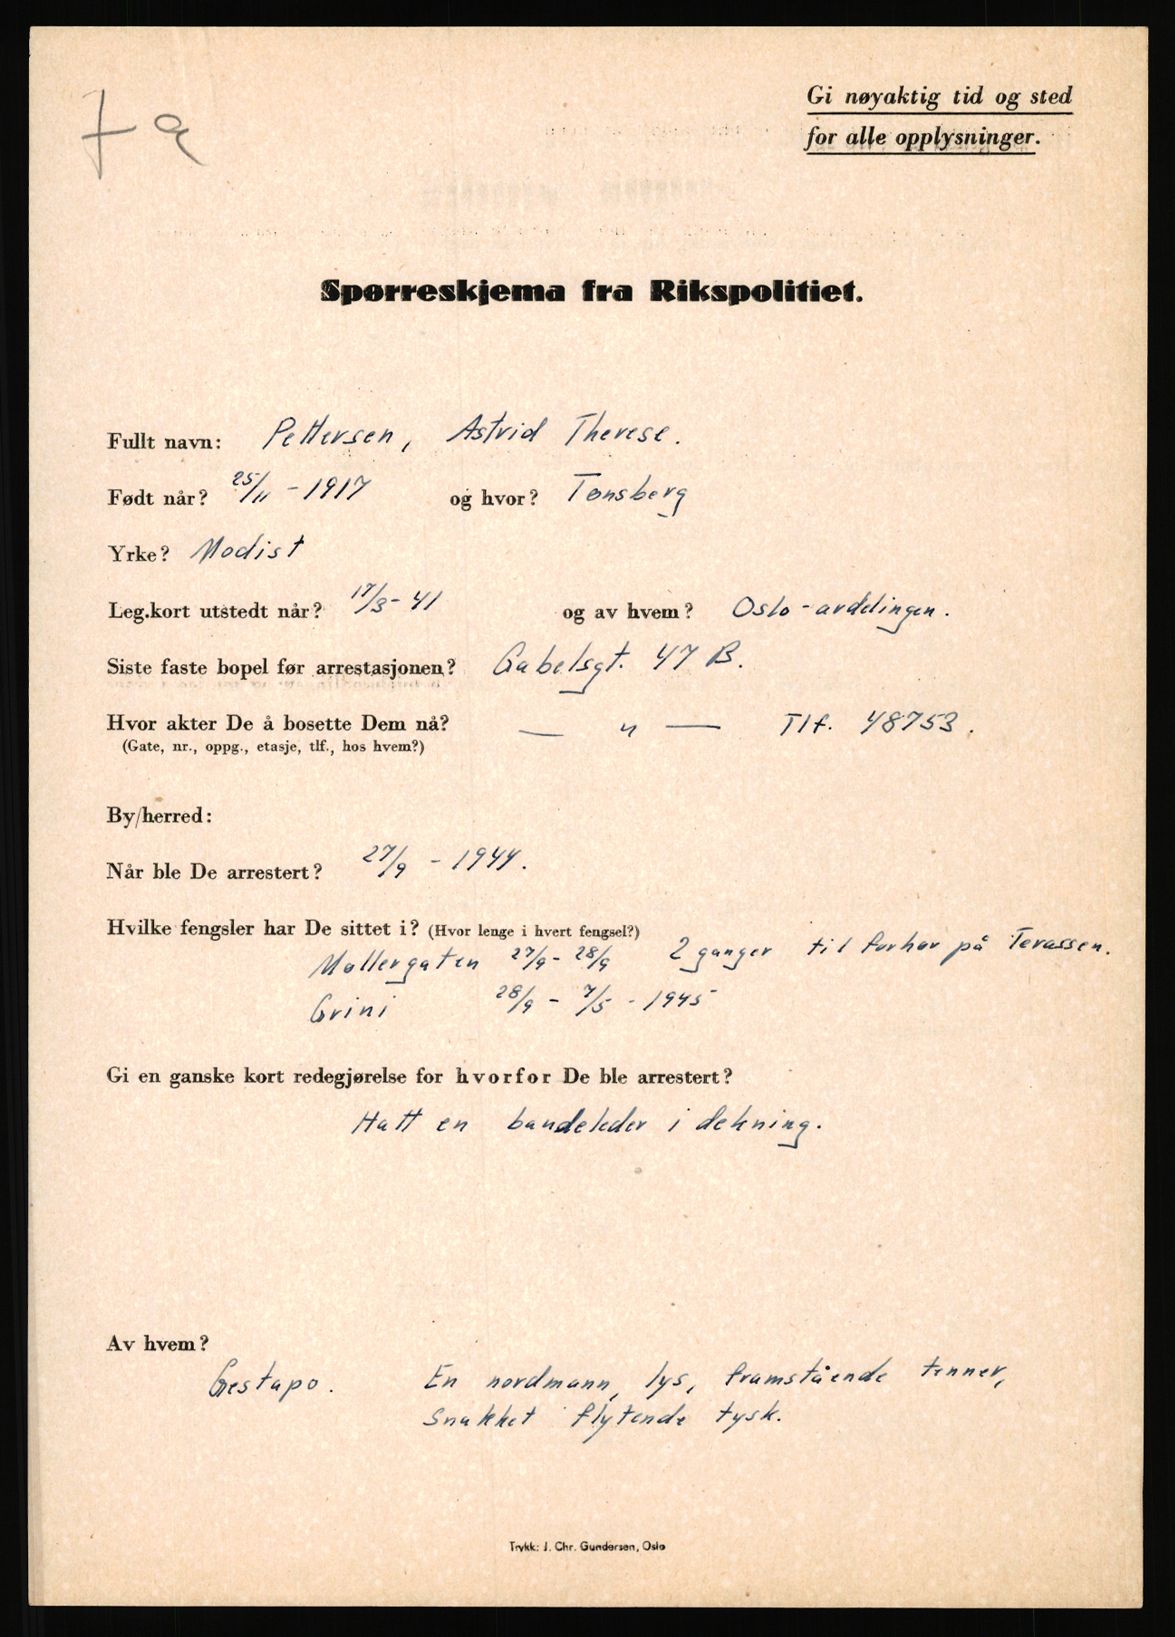 Gi nøyaktig tid og sted
for alle opplysninger.
Spørreskjema fra Rikspolitiet.
Fullt navn: Pettersen, Astrid Therese.
Født når? 25/11 - 1917 og hvor? Tønsberg
Yrke? Modist
Leg.kort utstedt når? 17/3 - 41 og av hvem? Oslo-avdelingen.
Siste faste bopel før arrestasjonen? Gabelsgt. 47 B.
Hvor akter De å bosette Dem nå? — " — Tlf. 48753.
(Gate, nr., oppg., etasje, tlf., hos hvem?)
By/herred:
Når ble De arrestert? 27/9 - 1944.
Hvilke fengsler har De sittet i? (Hvor lenge i hvert fengsel?)
Møllergaten 27/9 - 28/9 2 ganger til forhør på Terassen.
Grini 28/9 - 7/5 - 1945
Gi en ganske kort redegjørelse for hvorfor De ble arrestert?
Hatt en bandeleder i dekning.
Av hvem?
Gestapo. En nordmann, lys, framstående tenner,
snakket flytende tysk.
Trykk: J. Chr. Gundersen, Oslo